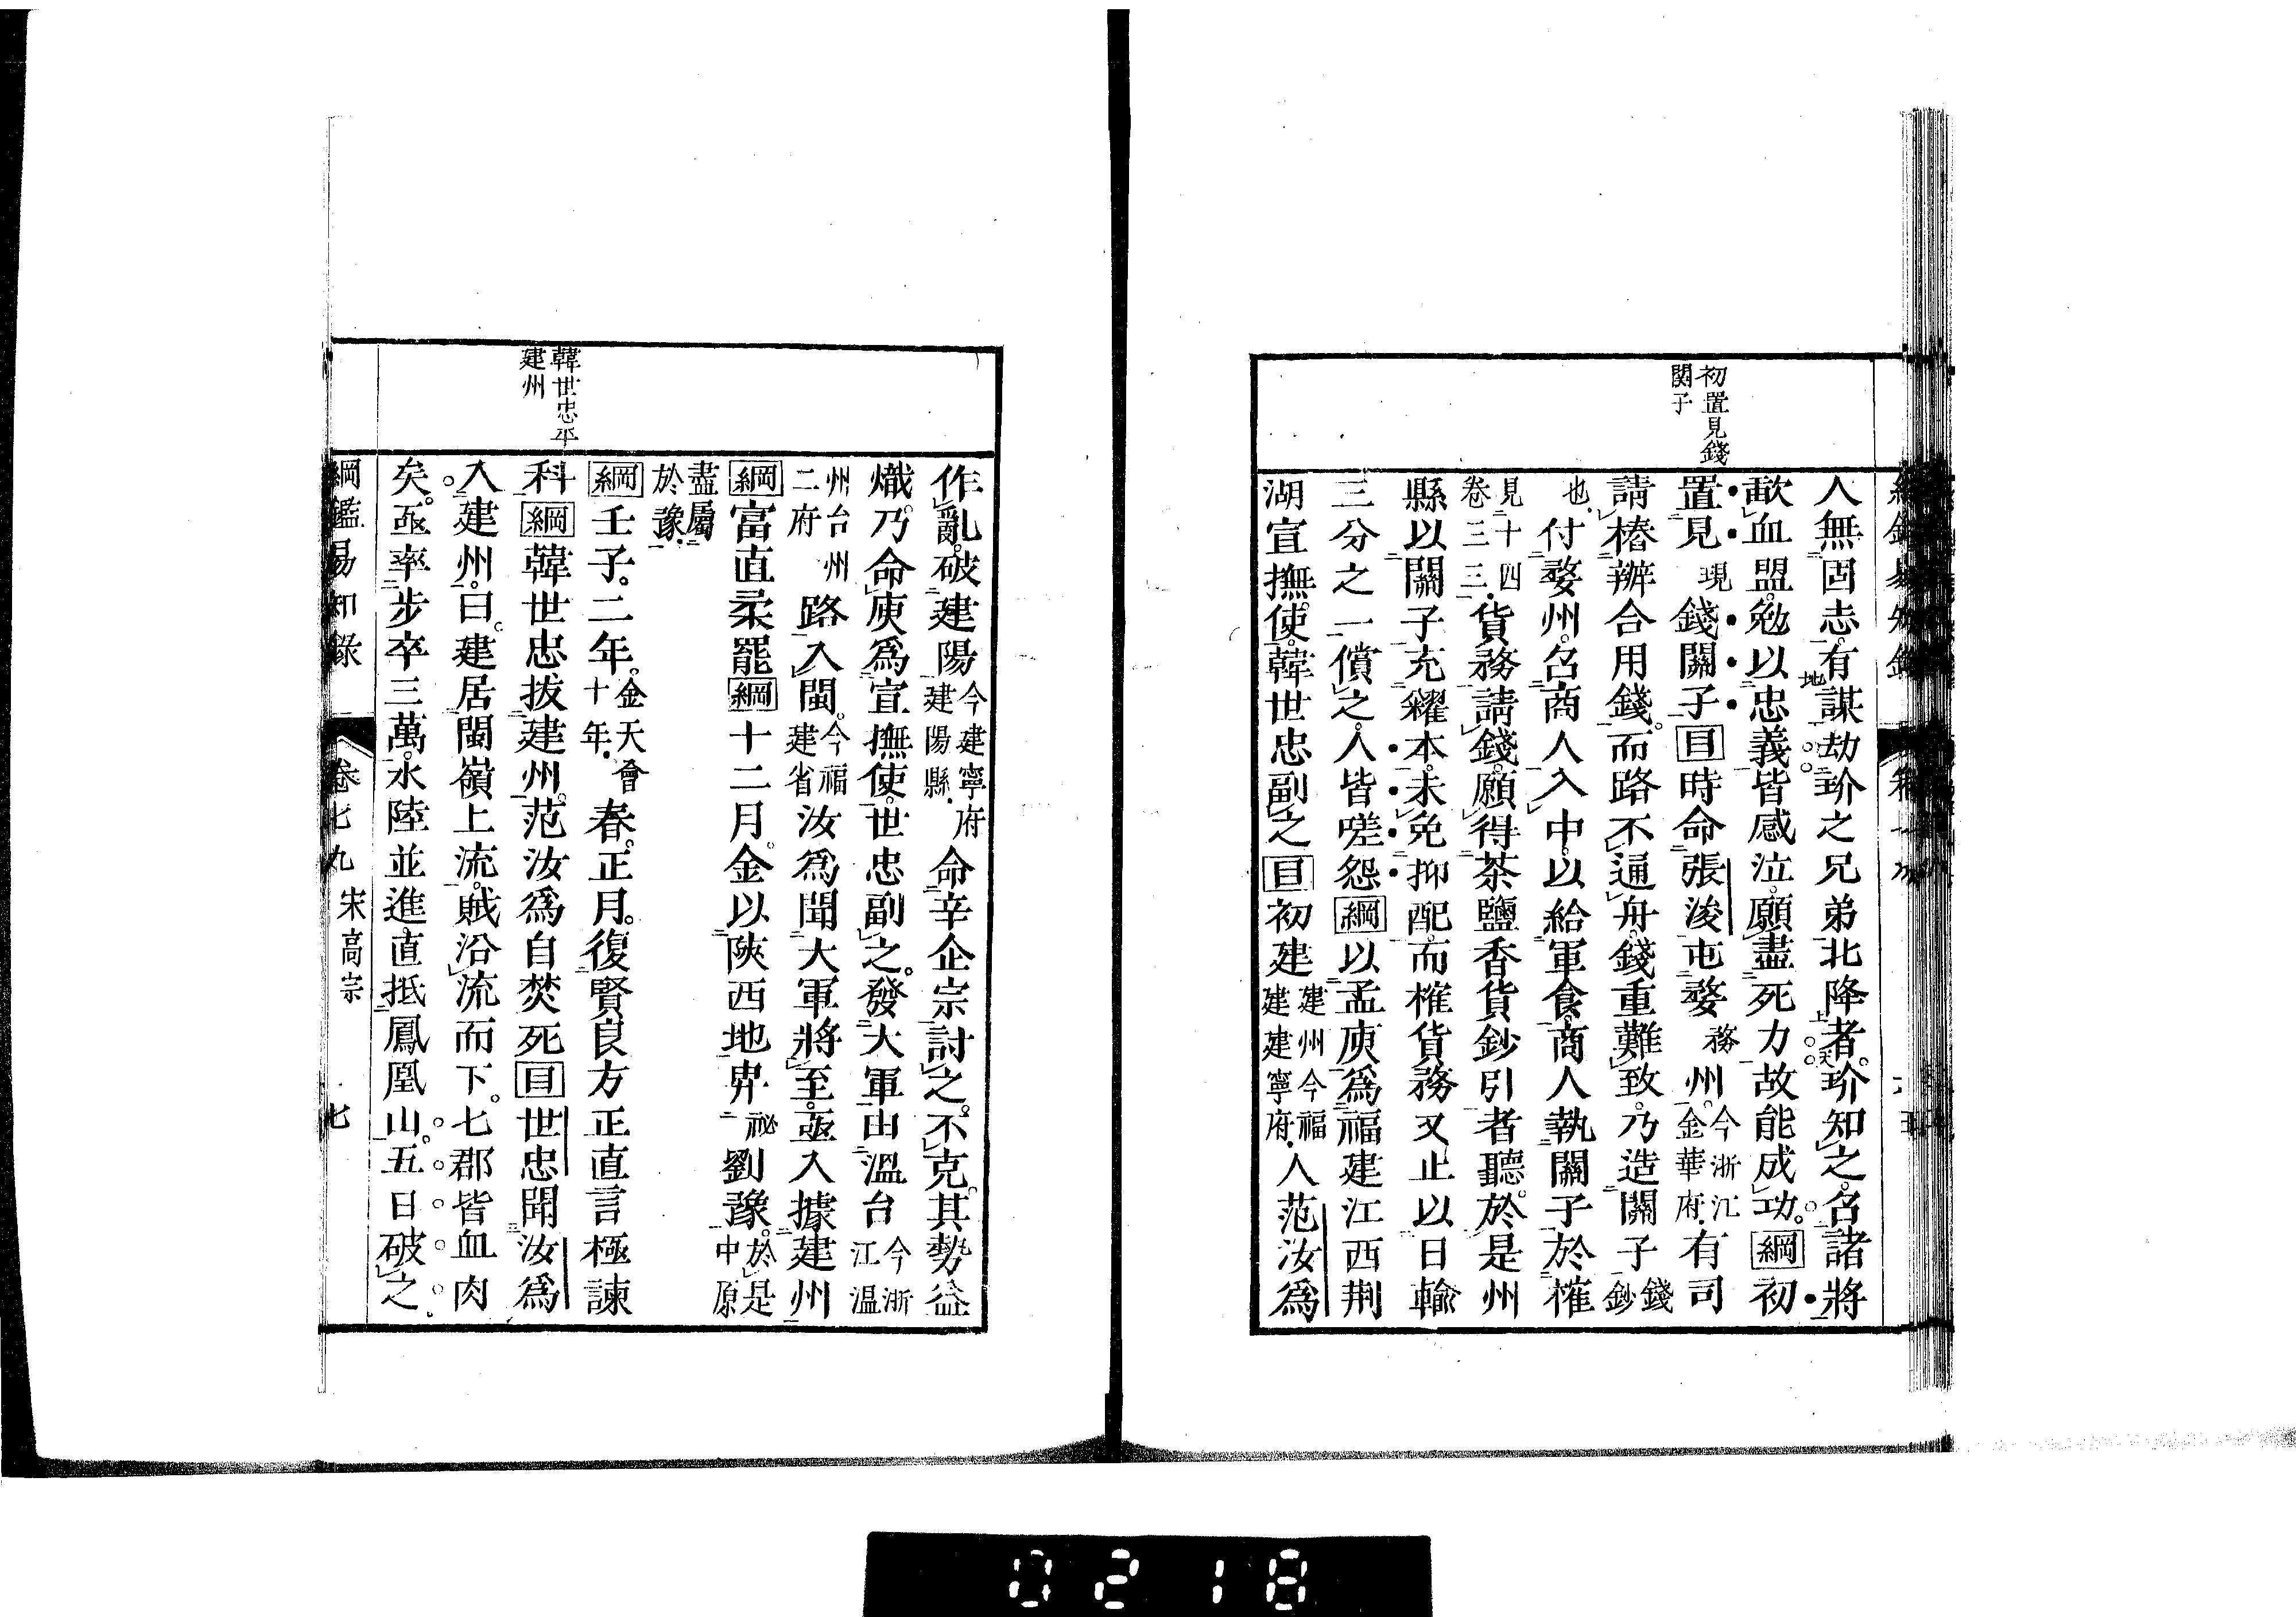 初置見錢
関子
人無固志有謀劫玠之兄弟北降者玠知之召諸將
歃血盟勉以忠義皆感泣願盡死力故能成功綱初
置見現錢關子目時命張浚屯婺務州今浙江金華府有司
請樁辦合用錢而路不通舟錢重難致乃造關子錢鈔
也付婺州召商人入中以給軍食商人執關子於榷
見十四卷三三貨務請錢願得茶鹽香貨鈔引者聽於是州
縣以關子充糴本未免抑配而榷貨務又止以日輸
三分之一償之人皆嗟怨綱以孟庾爲福建江西荆
湖宣撫使韓世忠副之目初建建州今福建建寧府人范汝爲
韓世忠平
建州
作亂破建陽今建寧府建陽縣命辛企宗討之不克其勢益
熾乃命庾爲宣撫使世忠副之發大軍由溫台今浙江温
州台州二府路入閩今福建省汝爲聞大軍將至亟入據建州
綱富直柔罷綱十二月金以陝西地畀祕劉豫於是中原
盡屬於豫
綱壬子二年金天會十年春正月復賢良方正直言極諫
科綱韓世忠拔建州范汝爲自焚死目世忠聞汝爲
入建州曰建居閩嶺上流賊沿流而下七郡皆血肉
矣亟率步卒三萬水陸並進直抵鳳凰山五日破之
綱鑑易知錄 卷七九 宋高宗 七
0218